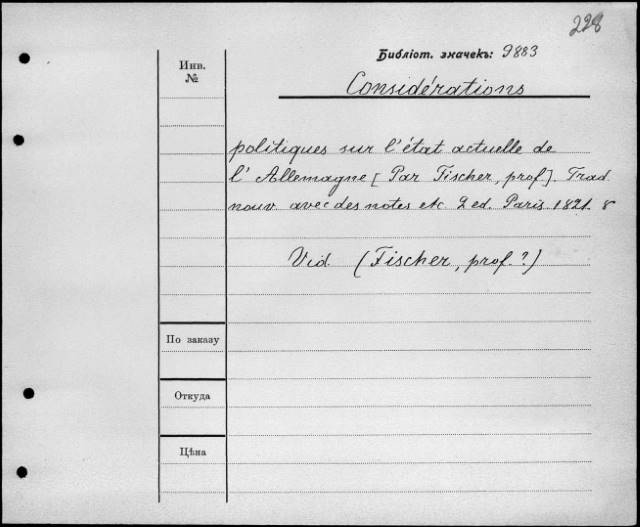 228
Библіот. значекъ: 9883
Инв.
№
Considérations
politiques sur l'état actuelle de
l'Allemagne [Par Fischer, prof]. Trad.
nouv. avec des notes etc 2 ed. Paris. 1821. 8
Vid. (Fischer, prof.?)
По заказу
Откуда
Цѣна